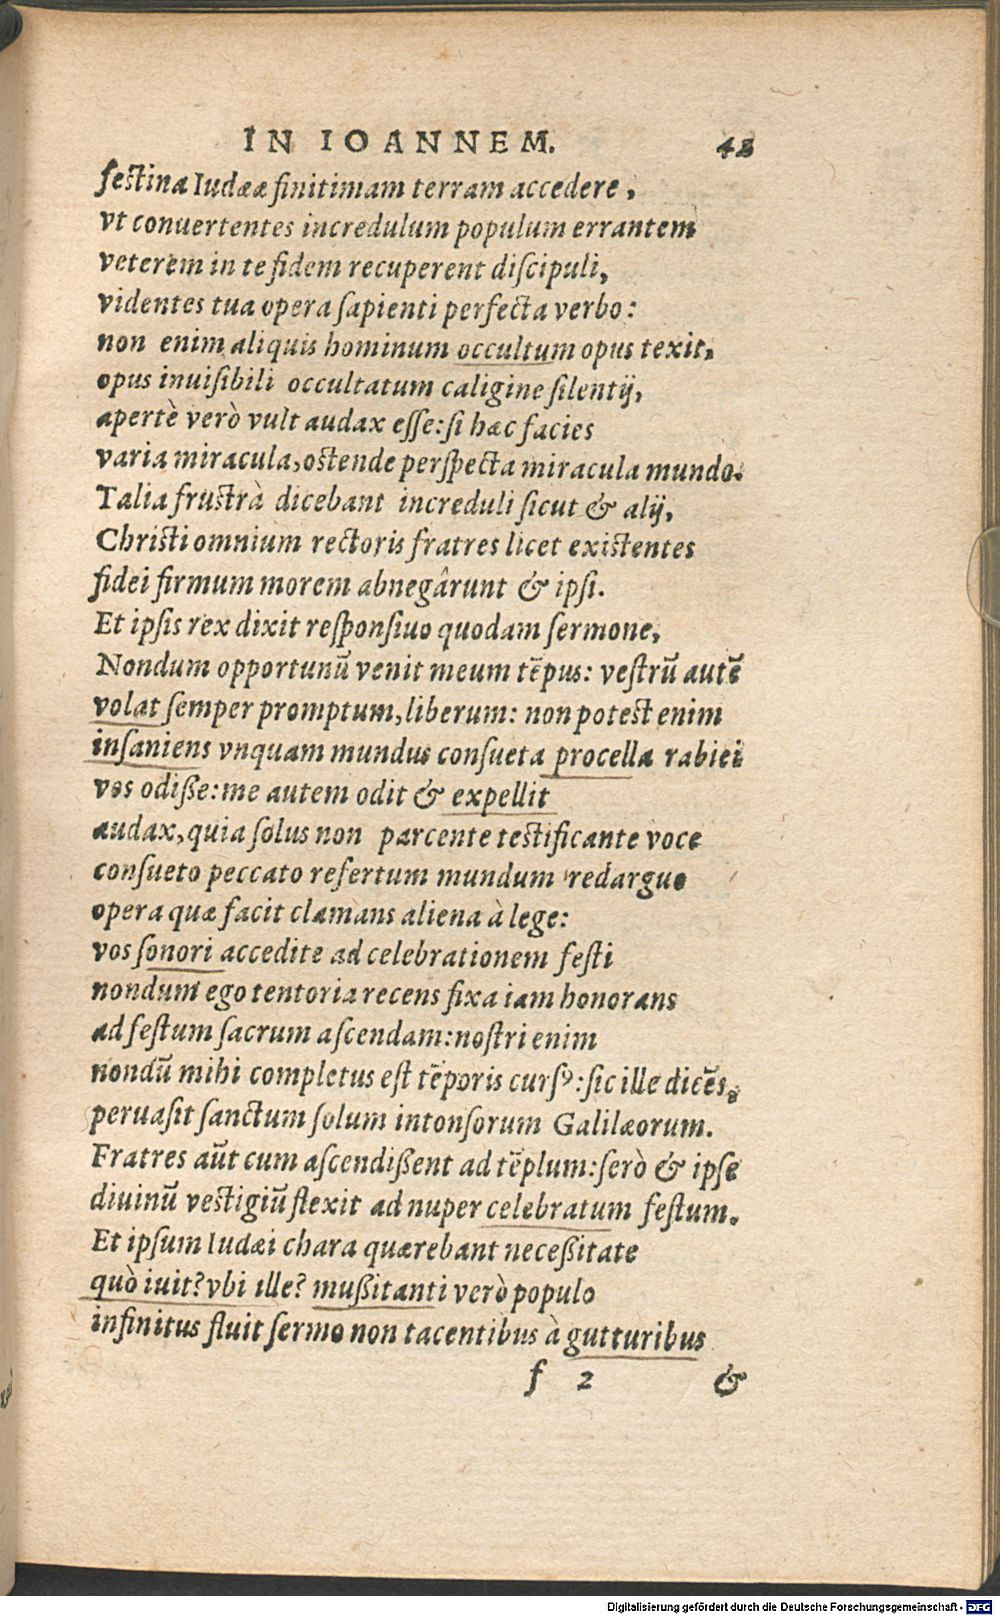 IN IOANNEM. 42
festina Iudææ finitimam terram accedere,
vt conuertentes incredulum populum errantem
veterem in te fidem recuperent discipuli,
videntes tua opera sapienti perfecta verbo:
non enim aliquis hominum occultum opus texit,
opus inuisibili occultatum caligine silentij,
apertè verò vult audax esse: si hæc facies
varia miracula, ostende perspecta miracula mundo.
Talia frustrà dicebant increduli sicut & alij,
Christi omnium rectoris fratres licet existentes
fidei firmum morem abnegârunt & ipsi.
Et ipsis rex dixit responsiuo quodam sermone,
Nondum opportunũ venit meum tẽpus: vestrũ autẽ
volat semper promptum, liberum: non potest enim
insaniens vnquam mundus consueta procella rabiei
vos odisse: me autem odit & expellit
audax, quia solus non parcente testificante voce
consueto peccato refertum mundum redarguo
opera quæ facit clamans aliena à lege:
vos sonori accedite ad celebrationem festi
nondum ego tentoria recens fixa iam honorans
ad festum sacrum ascendam: nostri enim
nondũ mihi completus est tẽporis cursꝰ: sic ille dicẽs,
peruasit sanctum solum intonsorum Galilæorum.
Fratres aũt cum ascendissent ad tẽplum: serò & ipse
diuinũ vestigiũ flexit ad nuper celebratum festum.
Et ipsum Iudæi chara quærebant necessitate
quò iuit? vbi ille? mussitanti verò populo
infinitus fluit sermo non tacentibus à gutturibus
f 2 &
Digitalisierung gefördert durch die Deutsche Forschungsgemeinschaft - DFG